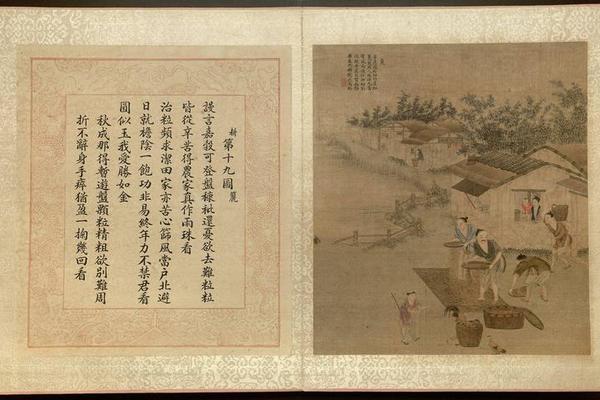 耕 第十九圖 簸
謾言嘉穀可登盤糠粃還憂欲去難粒粒
皆從辛苦得農家真作雨珠看
治粒頻求潔田家亦苦心篩風當户北避
日就檐陰一飽功非易終年力不禁君看
圓似玉我愛勝如金
秋成那得暫遊盤顆粒精粗欲別難周
折不辭身手瘁猶盈一掬幾回看